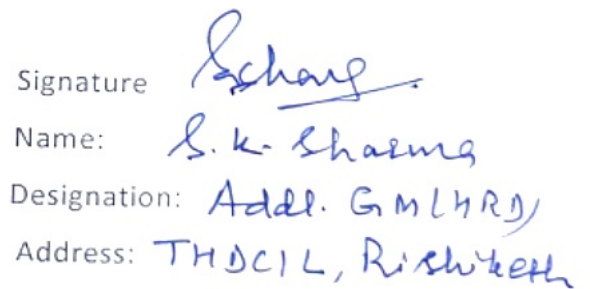 Signature
Name: S. K. Sharma
Designation: Addl. GM (HRD)
Address: THDCIL, Rishikesh